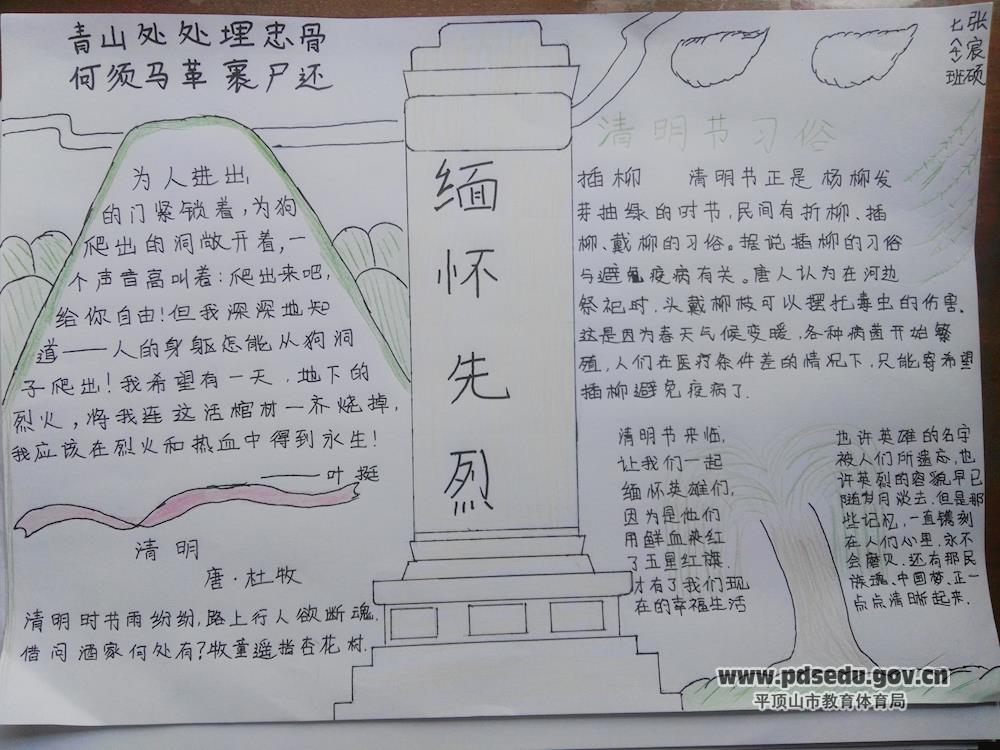 青山处处埋忠骨
何须马革裹尸还
为人进出
的门紧锁着，为狗
爬出的洞敞开着，一
个声音高叫着：爬出来吧，
给你自由！但我深深地知
道——人的身躯怎能从狗洞
子爬出！我希望有一天，地下的
烈火，将我连这活棺材一齐烧掉，
我应该在烈火和热血中得到永生！
——叶挺
清明
唐·杜牧
清明时节雨纷纷，路上行人欲断魂.
借问酒家何处有？牧童遥指杏花村.
缅怀先烈
张宸硕
七班
清明节习俗
插柳 清明节正是杨柳发
芽抽绿的时节，民间有折柳、插
柳、戴柳的习俗。据说插柳的习俗
与避免疫病有关。唐人认为在河边
祭祀时，头戴柳枝可以摆托毒虫的伤害。
这是因为春天气候变暖，各种病菌开始繁
殖，人们在医疗条件差的情况下，只能寄希望
插柳避免疫病了.
清明节来临，
让我们一起
缅怀英雄们，
因为是他们
用鲜血染红
了五星红旗.
才有了我们现
在的幸福生活
也许英雄的名字
被人们所遗忘，也
许英烈的容貌早已
随岁月淡去.但是那
些记忆，一直镌刻
在人们心里，永不
会磨灭.还有那民
族魂、中国梦、正一
点点清晰起来.
www.pdsedu.gov.cn
平顶山市教育体育局